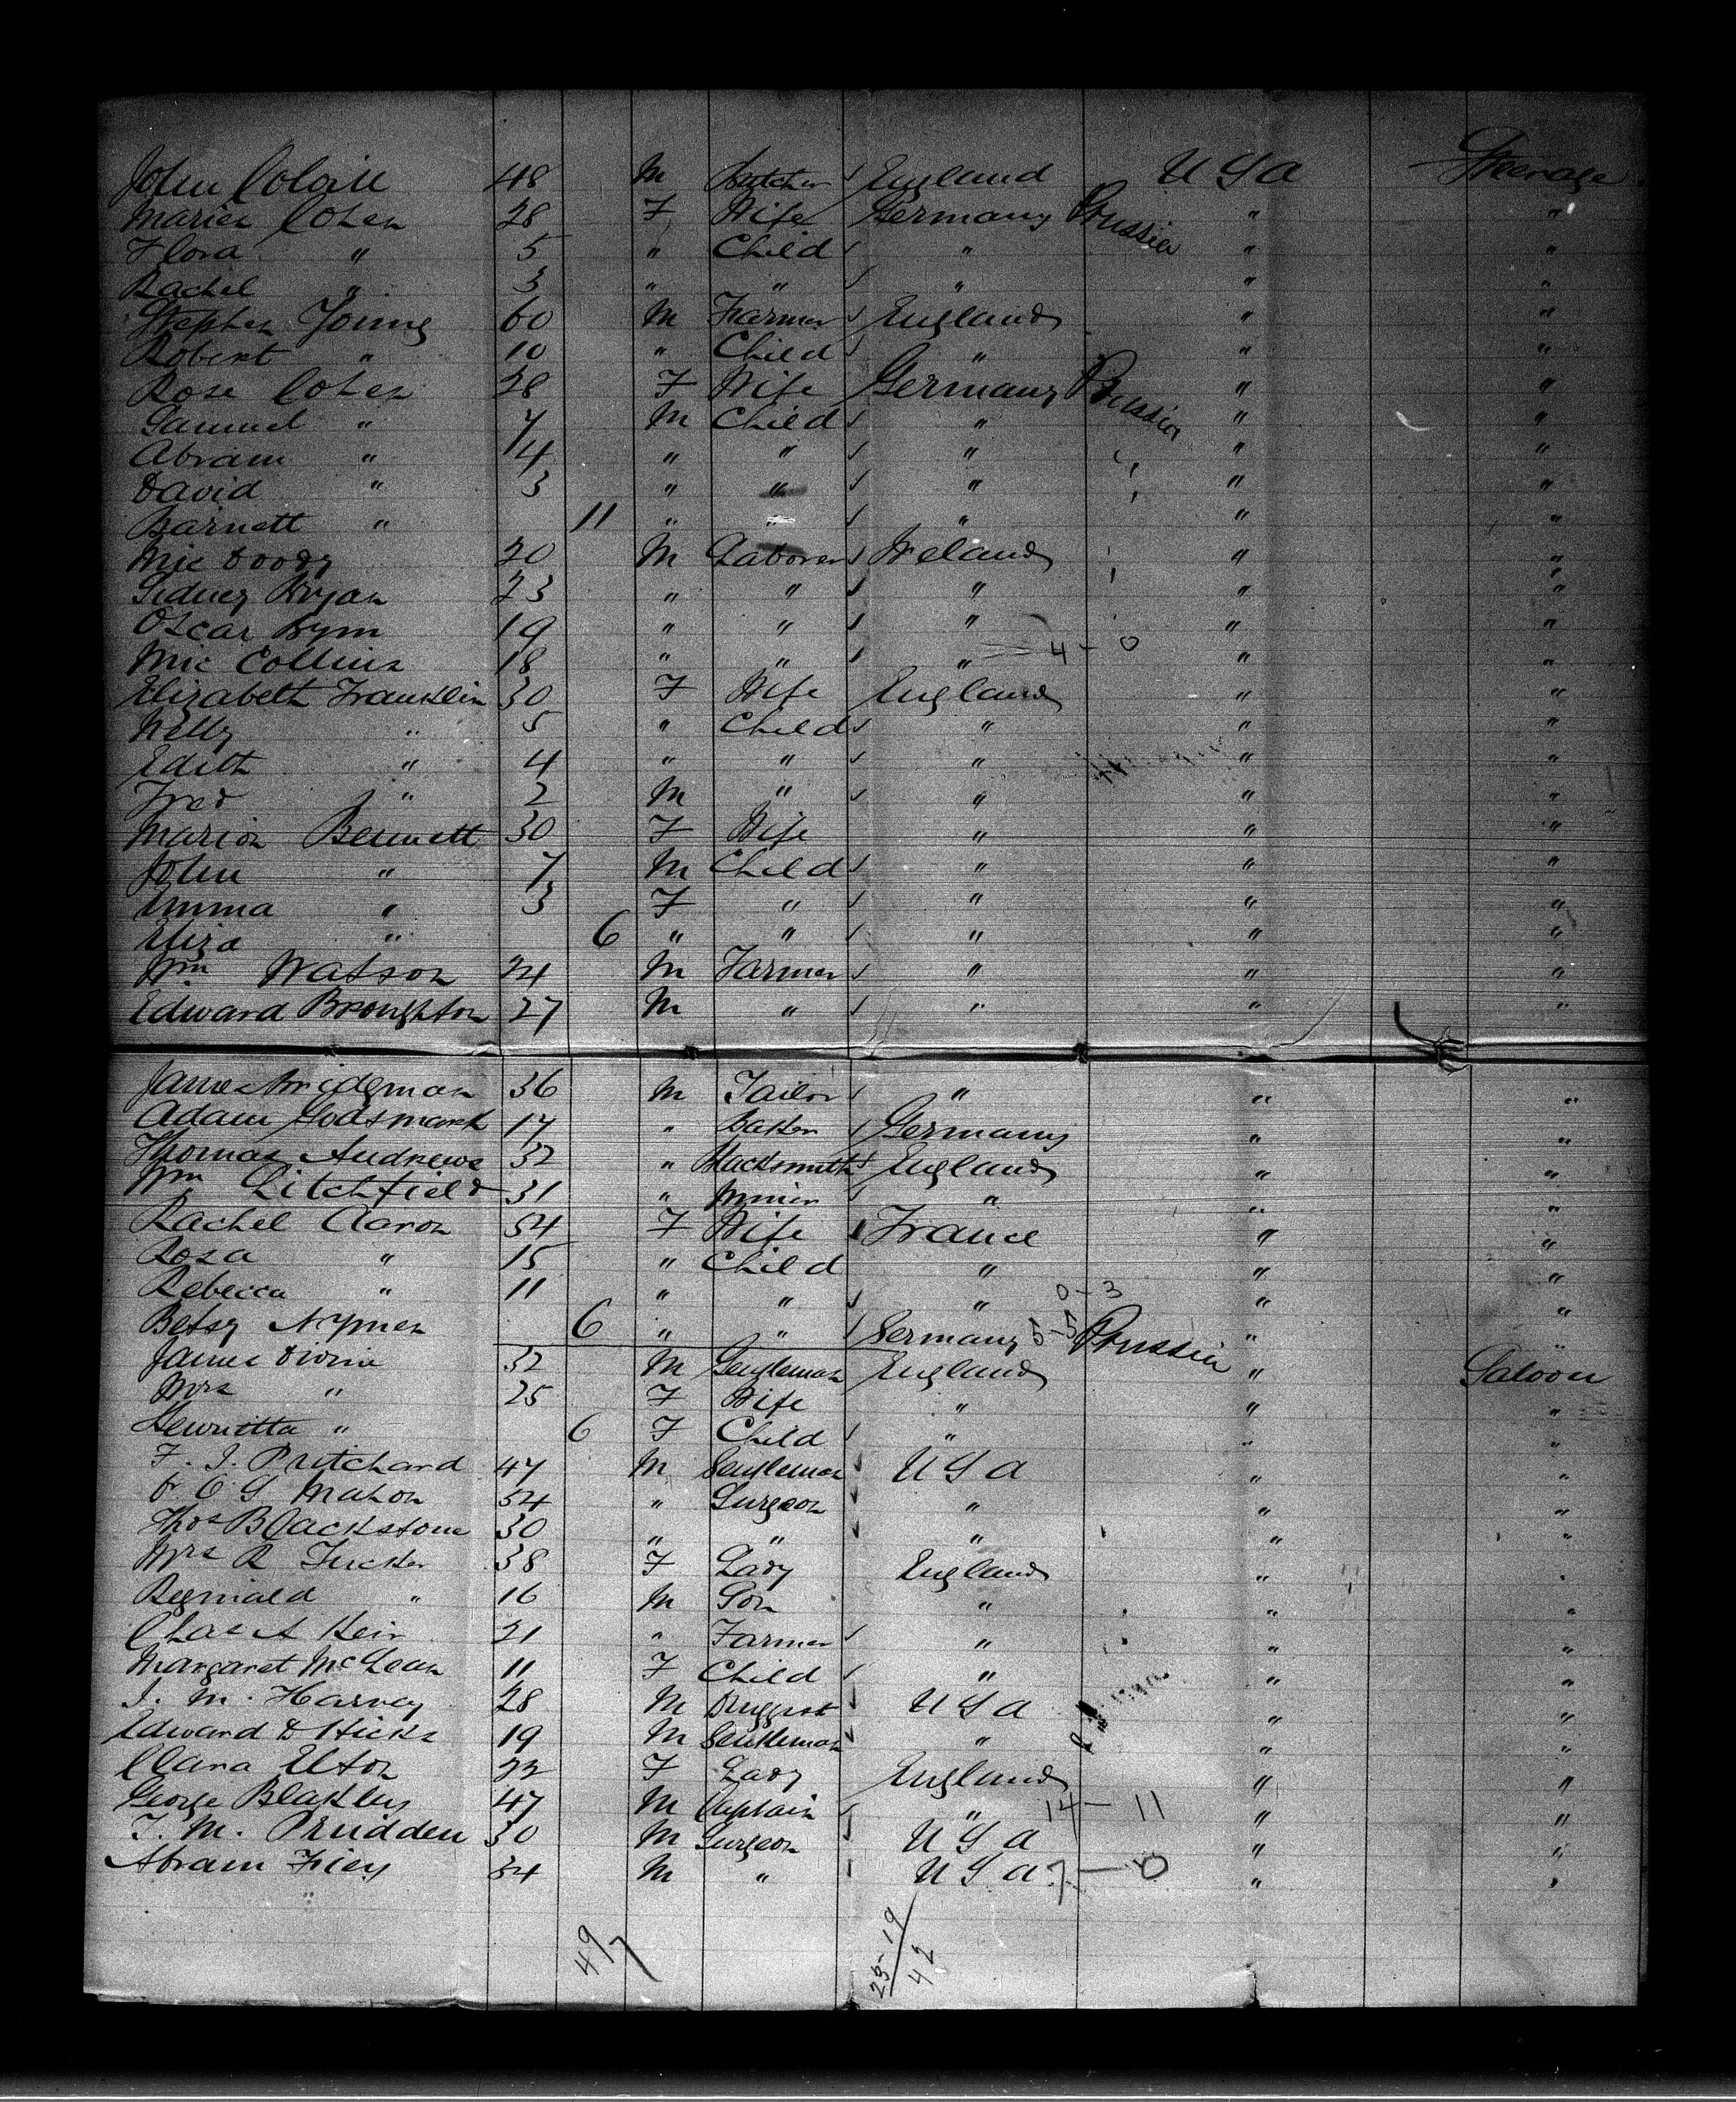 John 48 M Butcher England U S A Steerage
Marien Cohen 28 F Wife Germany Prussia " "
Flora " 5 " Child " " "
Rachel " 3 " " " " "
Stephen Young 60 M Farmer England " "
Robert " 10 " Child " " "
Rose Cohen 28 F Wife Germany Prussia " "
Samuel " 7 M Child " " "
Abram " 4 " " " " "
David " 3 " " " " "
Barnett " 11 " " " " "
Mic Doody 20 M Laborer Ireland " "
Sidney Bryan 23 " " " " "
Oscar Bym 19 " " " " "
Mic Collins 18 " " " 4 - 0 " "
Elizabeth Franklin 30 F Wife England " "
Nelly " 5 " Child " " "
Edith " 4 " " " " "
Fred " 2 M " " " "
Marion Bennett 30 F Wife " " "
John " 7 M Child " " "
Emma " 3 F " " " "
Eliza " 6 " " " " "
Wm Watson 24 M Farmer " " "
Edward Broughton 27 M " " " "
James Bridgman 36 M Tailor " " "
Adam Godsmark 17 " Baker Germany " "
Thomas Andrews 32 " Blacksmith England " "
Wm Litchfield 31 " Minier " " "
Rachel Aaron 54 F Wife France " "
Rosa " 15 " Child " " "
Rebecca " 11 " " " 0 - 3 " "
Betsy Nymen 6 " " Germany 5 - 5 Prussia " "
James Divine 32 M Gentleman England " Saloon
Mrs " 25 F Wife " " "
Henrietta " 6 F Child " " "
F. J. Pritchard 47 M Gentleman U S A " "
Dr O G Mahon 54 " Surgeon " " "
Thos Blackstone 30 " " " " "
Mrs R Tucker 38 F Lady England "
Reginald " 16 M Son " " "
Chas A Keir 21 " Farmer " " "
Margaret McLean 11 F Child " " "
J. M. Harvey 28 M Druggist U S A " "
Edward D Hicks 19 M Gentleman " " "
Clara Eton 22 F Lady England " "
George Blakley 47 M Captain " 14 - 11 " "
T. M. Prudden 30 M Surgeon U S A " "
Abram 34 M " U S A 7 - 0 " "
49/7 23-19
42